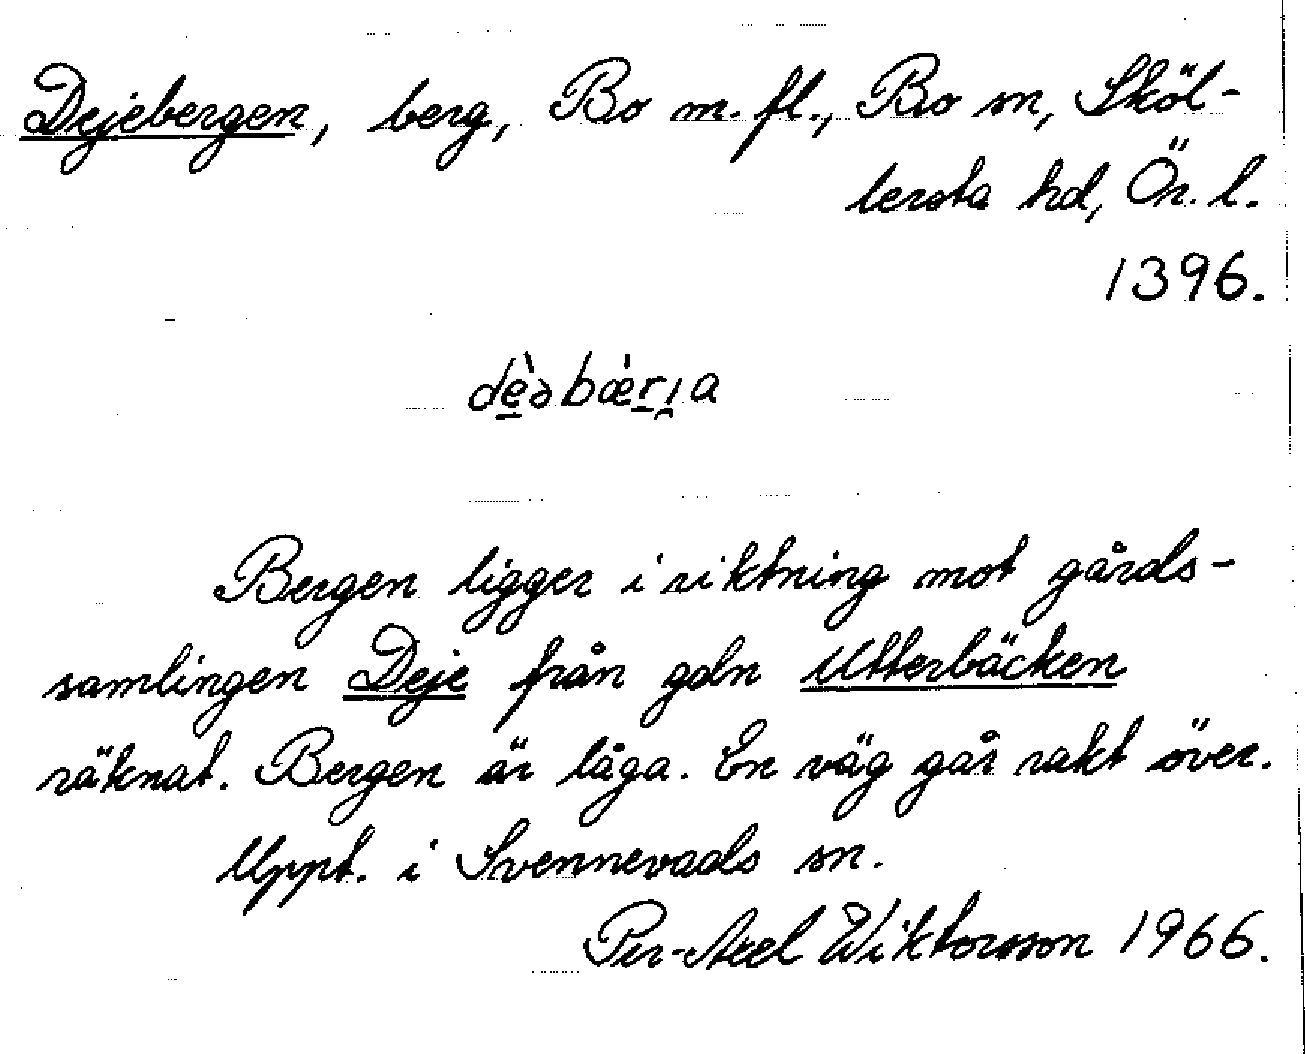 Dejebergen, berg, Bo m. fl., Bo sn, Sköl-
lersta hd, Ör. l.
1396.
dè̱əbæ̀r̲ı̯a
Bergen ligger i riktning mot gårds-
samlingen Deje från gdn Utterbäcken
räknat. Bergen är låga. En väg går rakt över.
Uppt. i Svennevads sn.
Per-Axel Wiktorsson 1966.